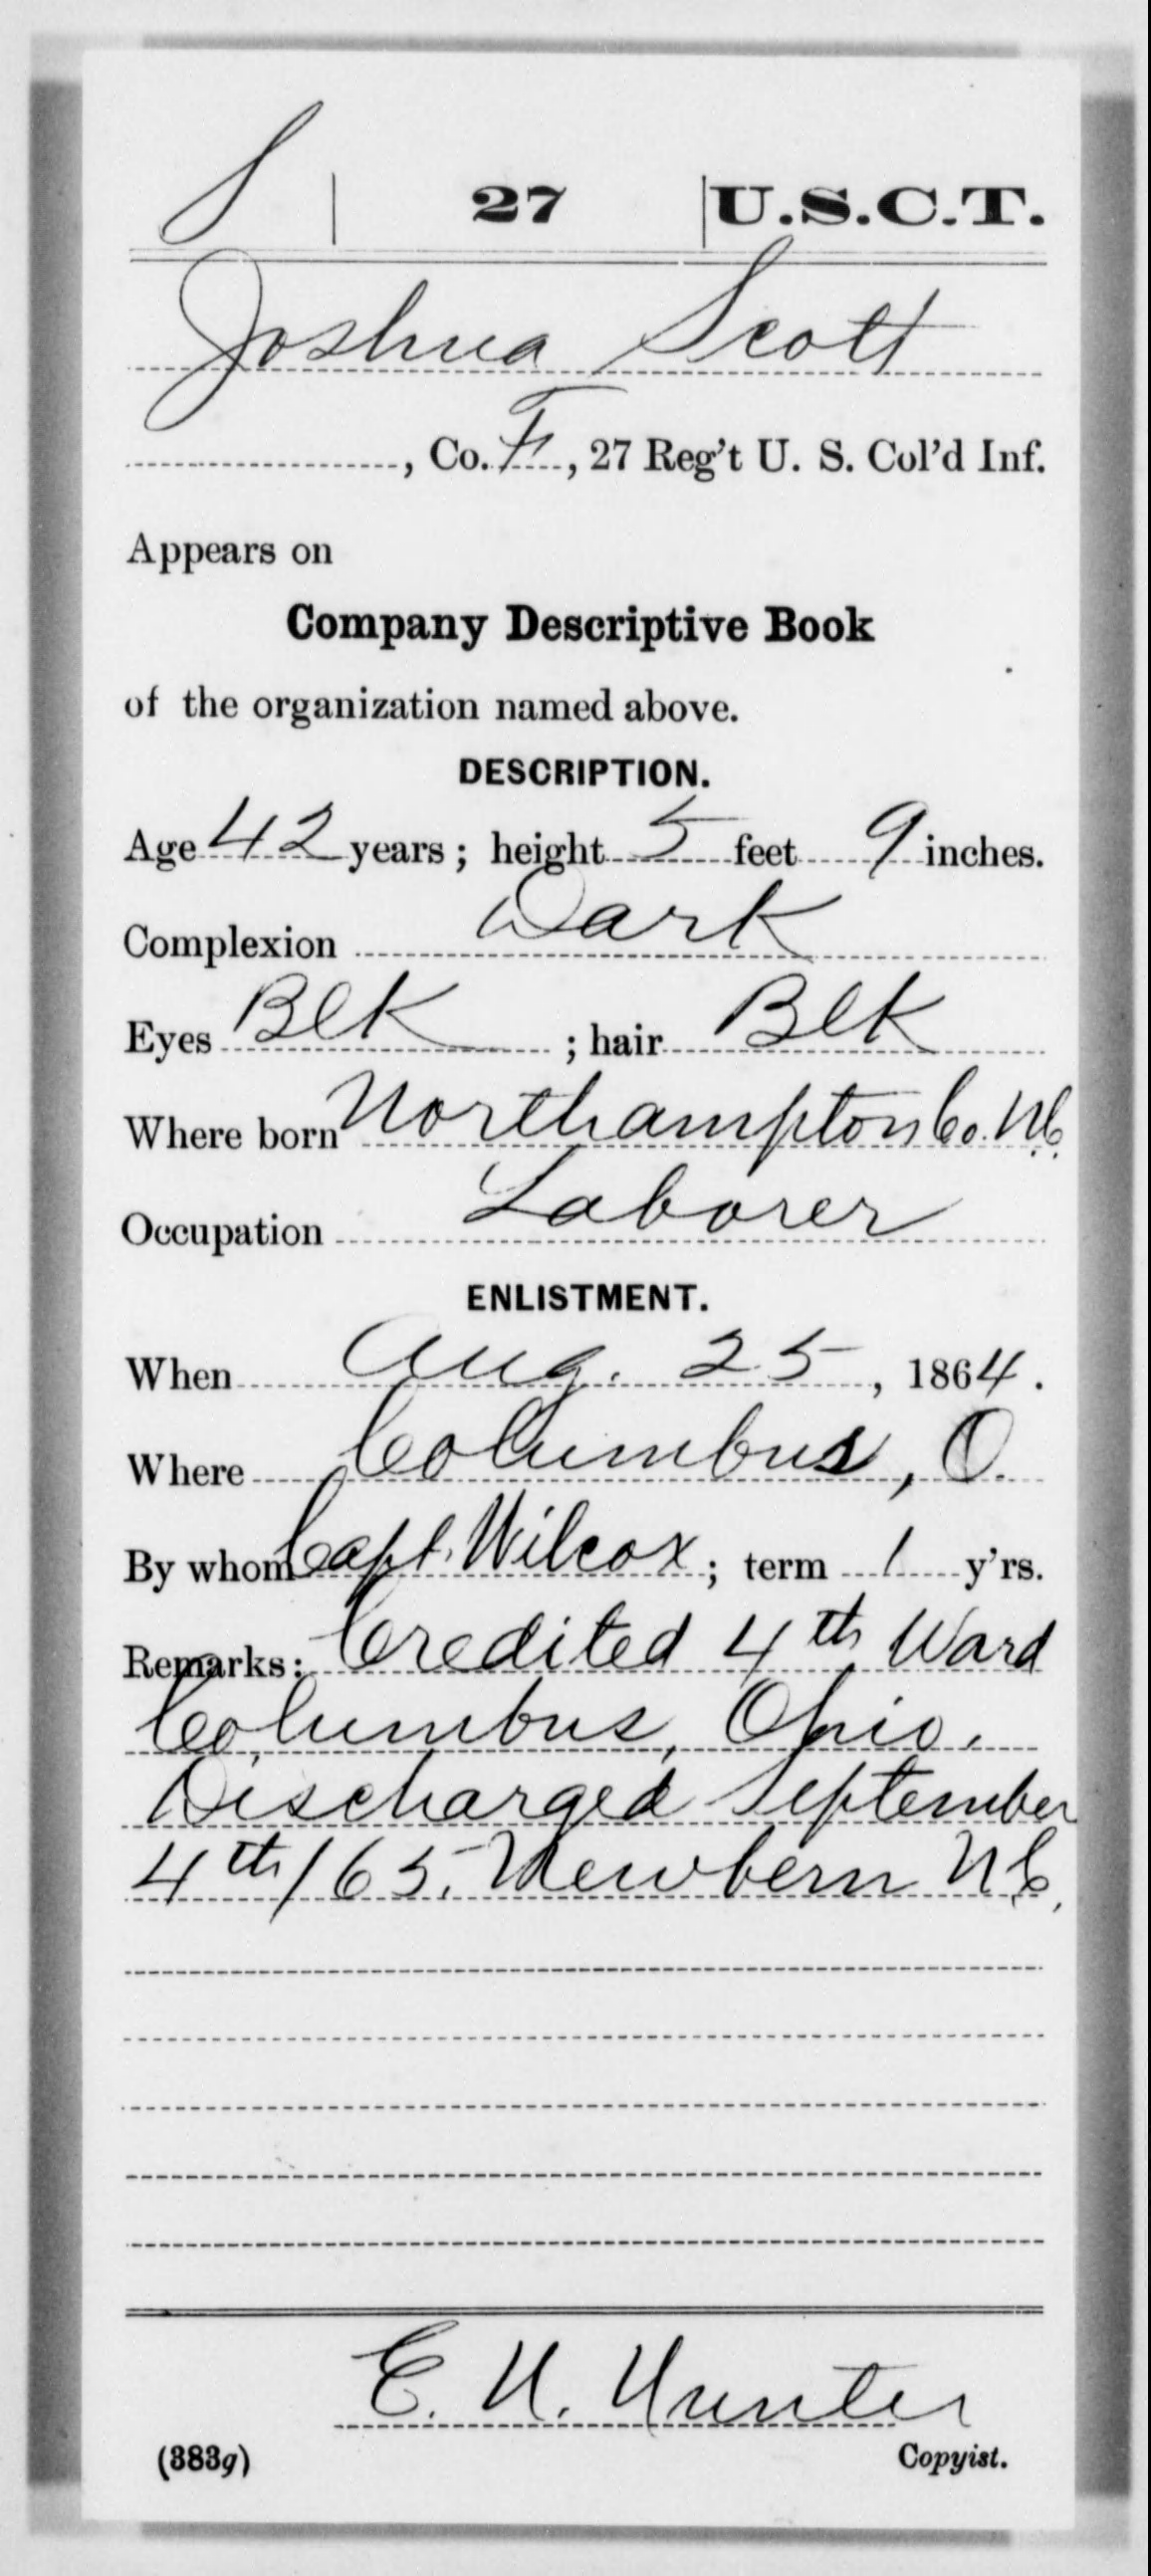 S | 27 | U.S.C.T.
Joshua Scott
, Co. F, 27 Reg't U. S. Col'd Inf.
Appears on
Company Descriptive Book
of the organization named above.
DESCRIPTION.
Age 42 years; height 5 feet 9 inches.
Complexion Dark
Eyes Blk ; hair Blk
Where born Northampton Co. N.C.
Occupation Laborer
ENLISTMENT.
When Aug. 25, 1864.
Where Columbus, O.
By whom Capt. Wilcox; term 1 y'rs.
Remarks: Credited 4th Ward
Columbus, Ohio.
Discharged September
4th/65. Newbern N.C.
E. H. Hunter
(383g) Copyist.